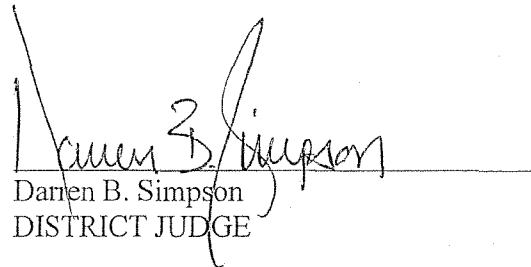 Darren B. Simpson
Darren B. Simpson
DISTRICT JUDGE